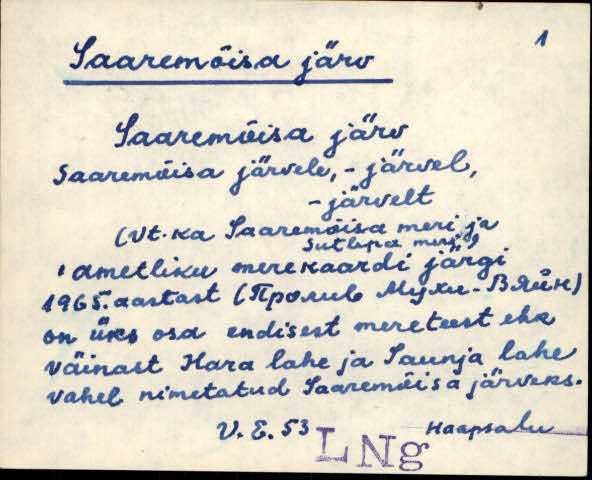 1
Saaremõisa järv
Saaremõisa järv
Saaremõisa järvele, - järvel,
- järvelt
(Vt. ka Saaremõisa meri ja
Sutlepa meri)
ametliku merekaardi järgi
1965. aastast (Пролив Мухи-Вяйн)
on üks osa endisest mereteest ehk
väinast Hara lahe ja Saunja lahe
vahel nimetatud Saaremõisa järveks.
V. E. 53 Haapsalu
LNg